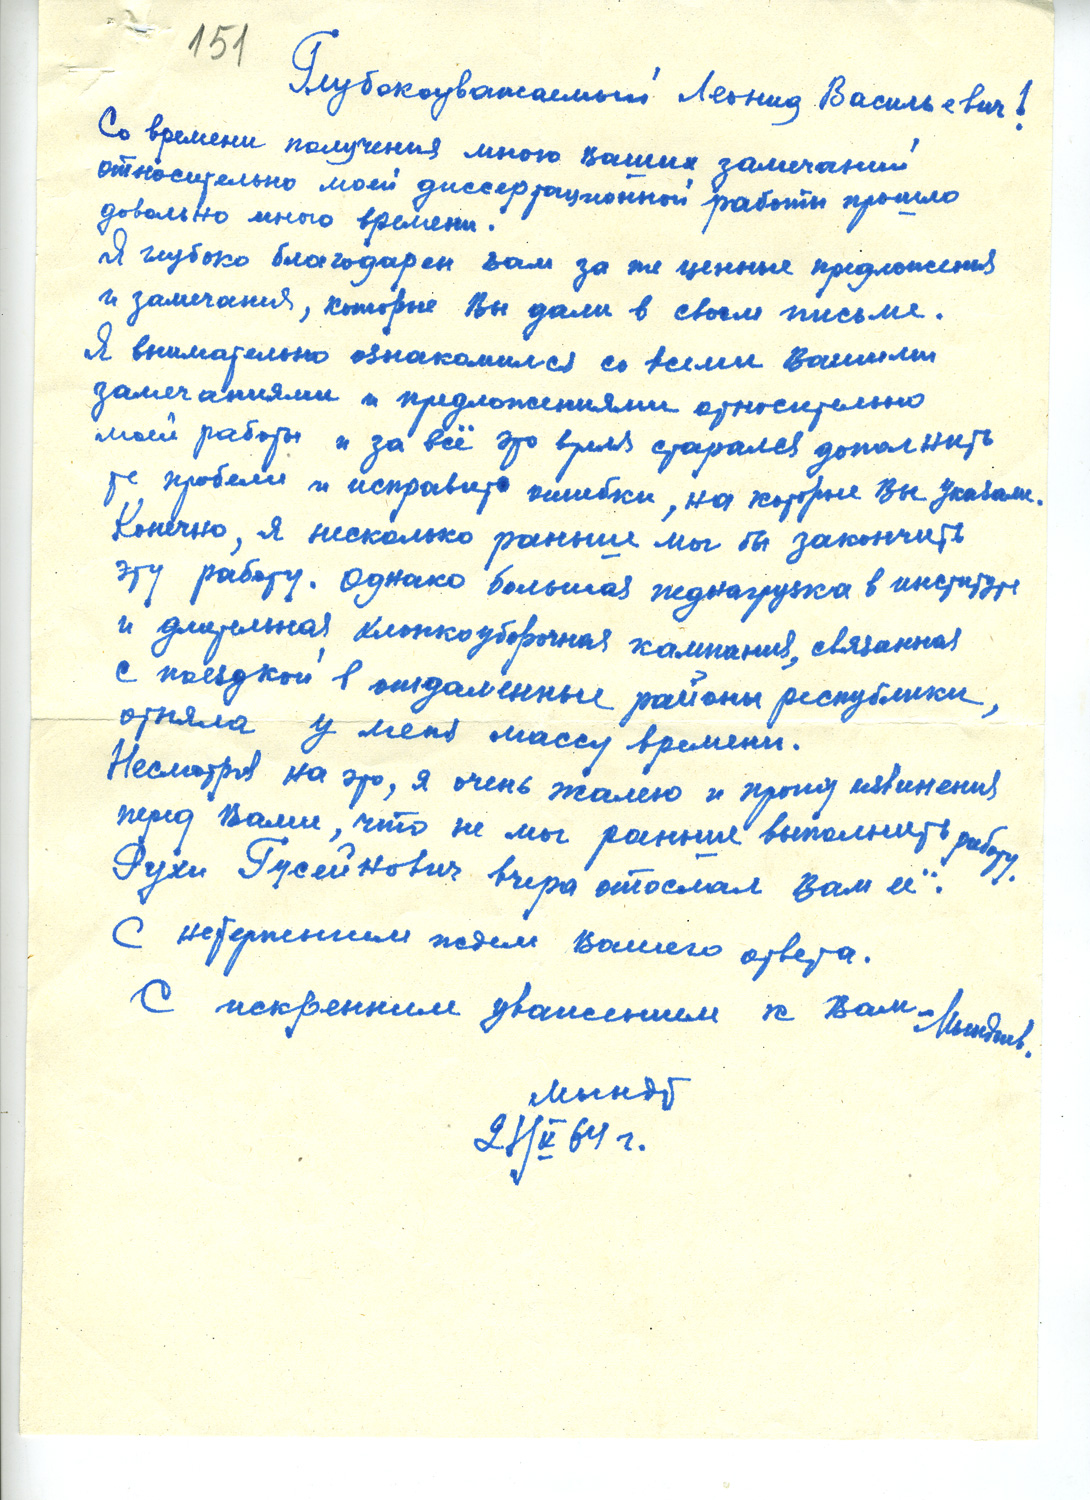 151
Глубокоуважаемый Леонид Васильевич!
Со времени получения мною Ваших замечаний
относительно моей диссертационной работы прошло
довольно много времени.
Я глубоко благодарен Вам за те ценные предложения
и замечания, которые Вы дали в своем письме.
Я внимательно ознакомился со всеми Вашими
замечаниями и предложениями относительно
моей работы и за всё это время старался дополнить
те пробелы и исправить ошибки, на которые Вы указали.
Конечно, я несколько раньше мог бы закончить
эту работу. Однако большая педнагрузка в институте
и длительная хлопкоуборочная кампания, связанная
с поездкой в отдаленные районы республики,
отняла у меня массу времени.
Несмотря на это, я очень жалею и прошу извинения
перед Вами, что не мог раньше выполнить работу.
Рухи Гусейнович вчера отослал Вам её.
С нетерпением ждем Вашего ответа.
С искренним уважением к Вам
64 г.